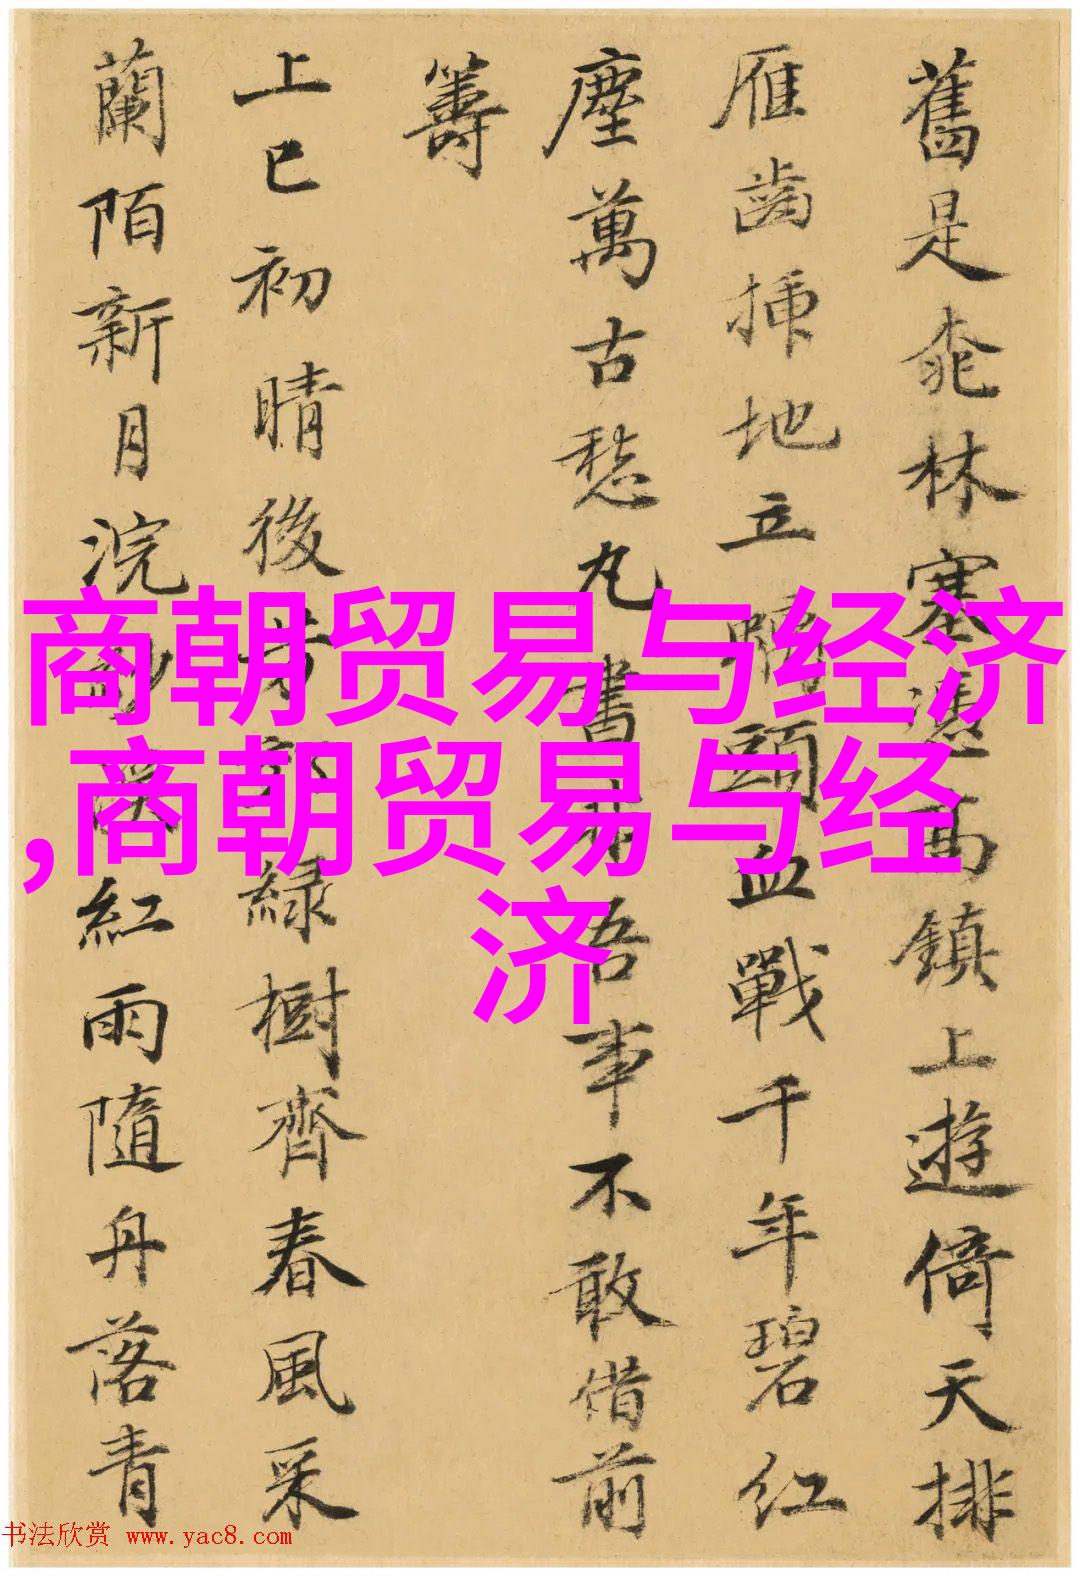 舊是桃林塞憑高鎮上遊倚天排
雁齒插地立頭血戰千年碧紅
塵萬古愁丸書亦吾事不敢借前
籌
上巳初晴後芳郊綠樹齊春風采
蘭陌新月浣紗溪紅雨隨舟落青
商朝贸易与经济
,商朝贸易与经
济
书法欣赏 www.yac8.com